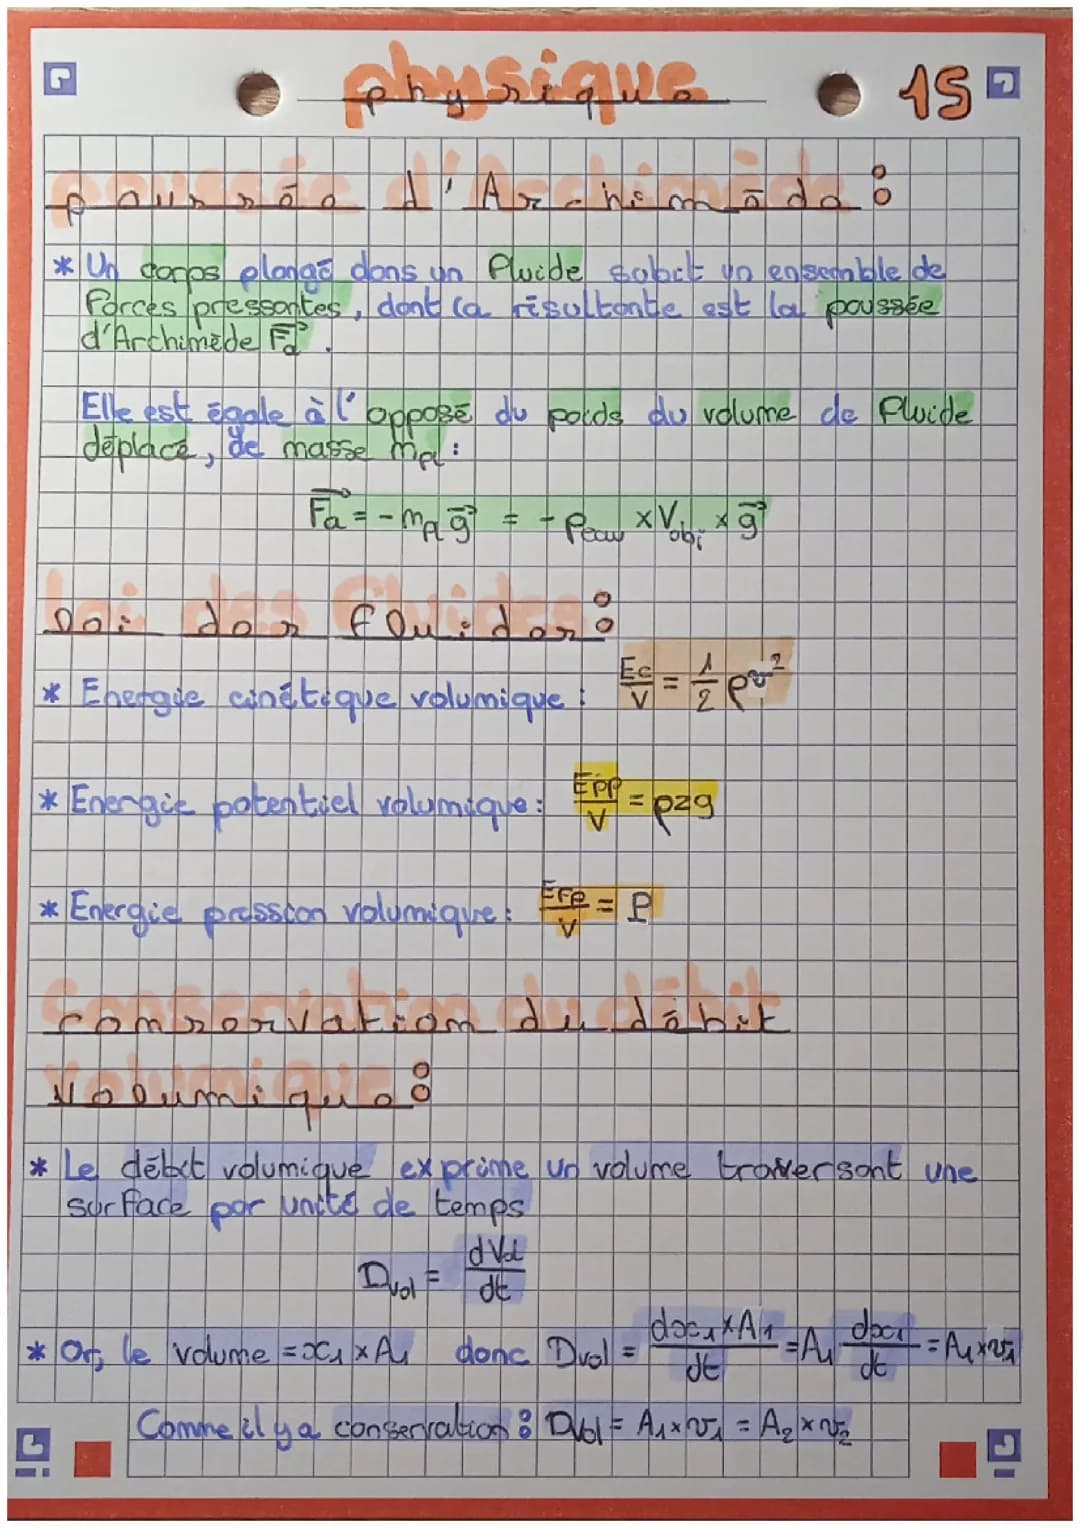 physique 15
poussée d'Archimède :
* Un corps plongé dans un fluide subit un ensemble de
forces pressantes, dont la résultante est la poussée
d'Archimède Fa.
Elle est égale à l'opposé du poids du volume de fluide
déplacé, de masse mfl :
Fa = -mfl g = -ρeau × Vobj × g
Loi des fluides :
* Energie cinétique volumique : Ec/V = 1/2 ρv²
* Energie potentiel volumique : Epp/V = ρzg
* Energie pression volumique : EFp/V = P
Conservation du débit
volumique :
* Le débit volumique exprime un volume traversant une
surface par unité de temps
Dvol = dVol/dt
* Or, le volume = x₁ × A₁ donc Dvol = dx₁×A₁/dt = A₁ dx₁/dt = A₁×v₁
Comme il y a conservation : Dvol = A₁×v₁ = A₂×v₂